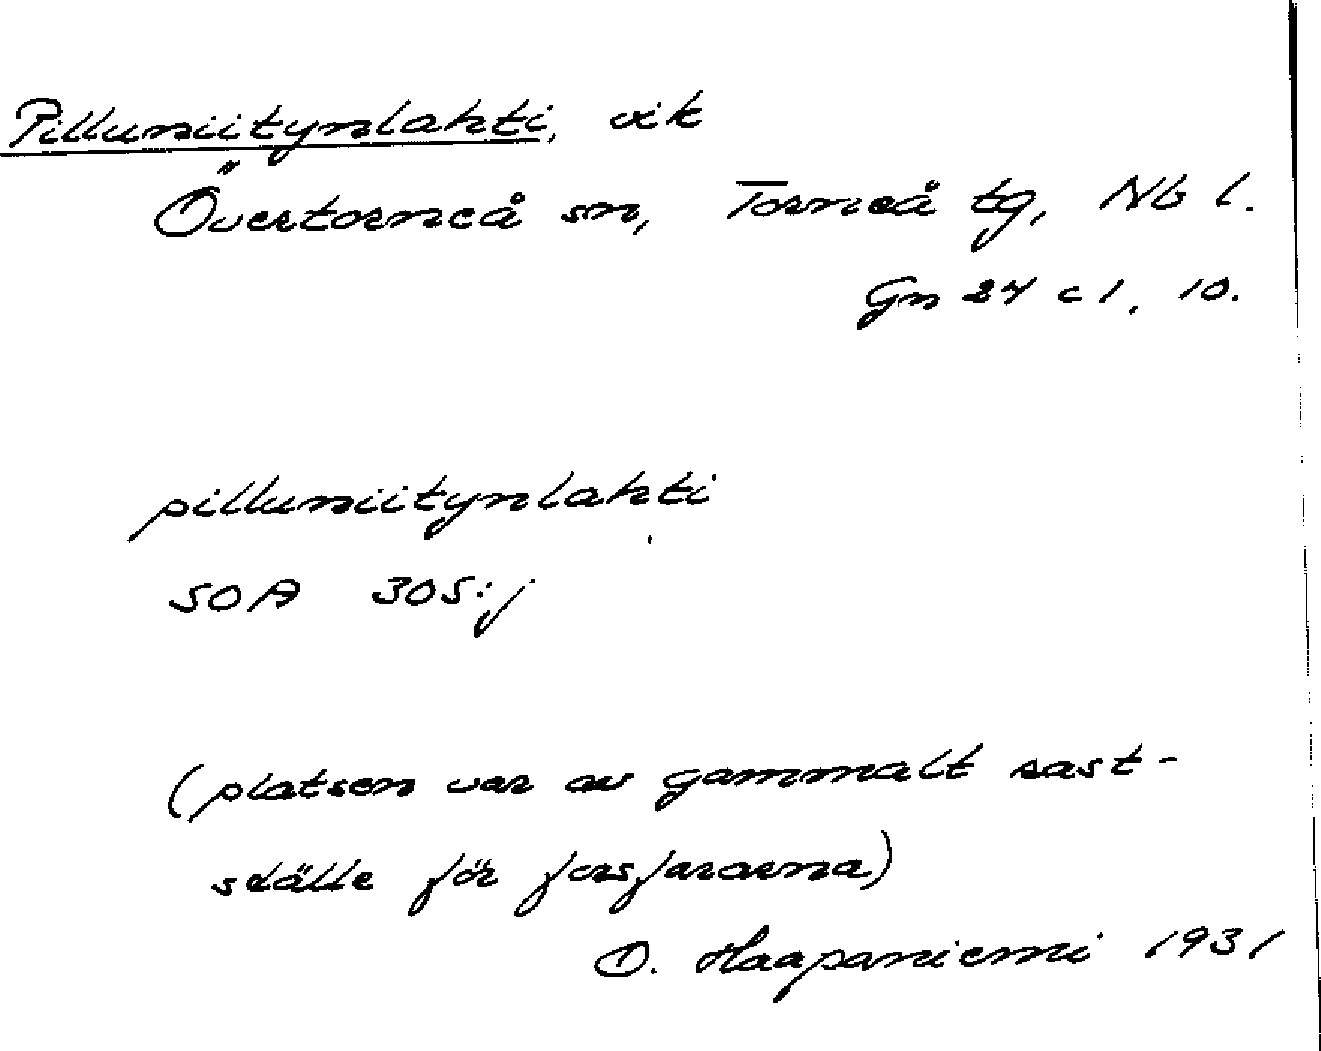 Pilluniitynlahti, vik
Övertorneå sn, Torneå tg, Nb l.
Gn 24 c 1, 10.
pilluniitynlahti
SOA 305:j
(platsen var av gammalt rast-
ställe för forsfararna)
O. Haapaniemi 1931